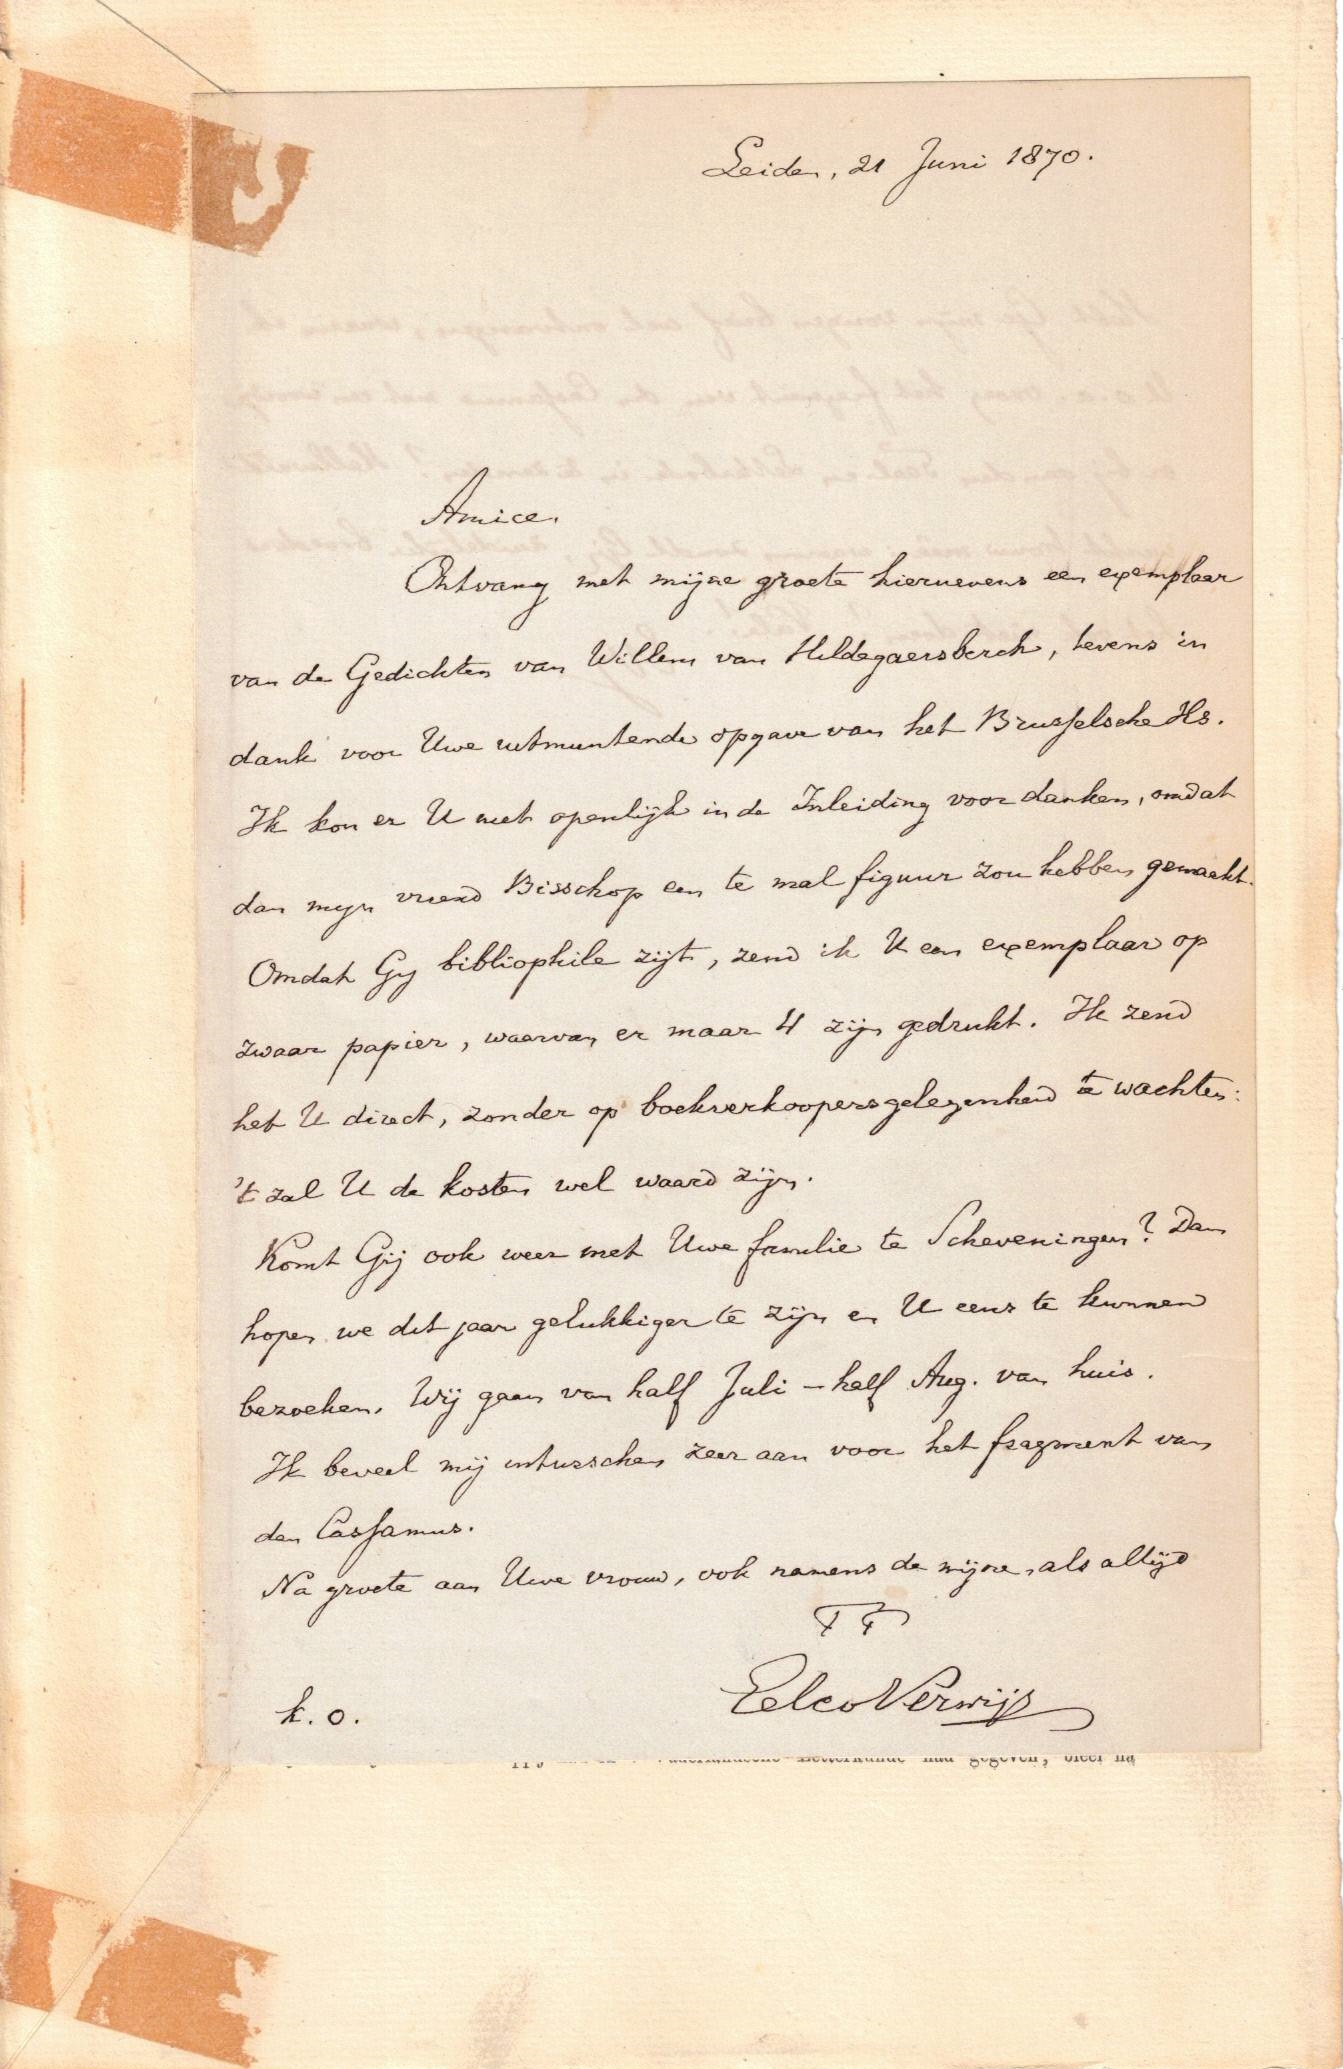 Leiden, 21 Juni 1870.
Amice.
Ontvang met mijne groete hiernevens een exemplaar
van de Gedichten van Willem van Hildegaersberch, tevens in
dank voor Uwe uitmuntende opgave van het Brusselsche Hs.
Ik kon er U niet openlijk in de Inleiding voor danken, omdat
dan mijn vriend Bisschop een te mal figuur zou hebben gemaakt.
Omdat Gij bibliophile zijt, zend ik U een exemplaar op
zwaar papier, waarvan er maar 4 zijn gedrukt. Ik zend
het U direct, zonder op boekverkoopersgelegenheid te wachten:
't zal U de kosten wel waard zijn.
Komt Gij ook weer met Uwe familie te Scheveningen? Dan
hopen we dit jaar gelukkiger te zijn en U eens te kunnen
bezoeken. Wij gaan van half Juli – half Aug. van huis.
Ik beveel mij intusschen zeer aan voor het fragment van
den Cassamus.
Na groete aan Uwe vrouw, ook namens de mijne, als altijd
TT
Eelco Verwijs
k. o.
Letterkunde had gegeven, bleef na